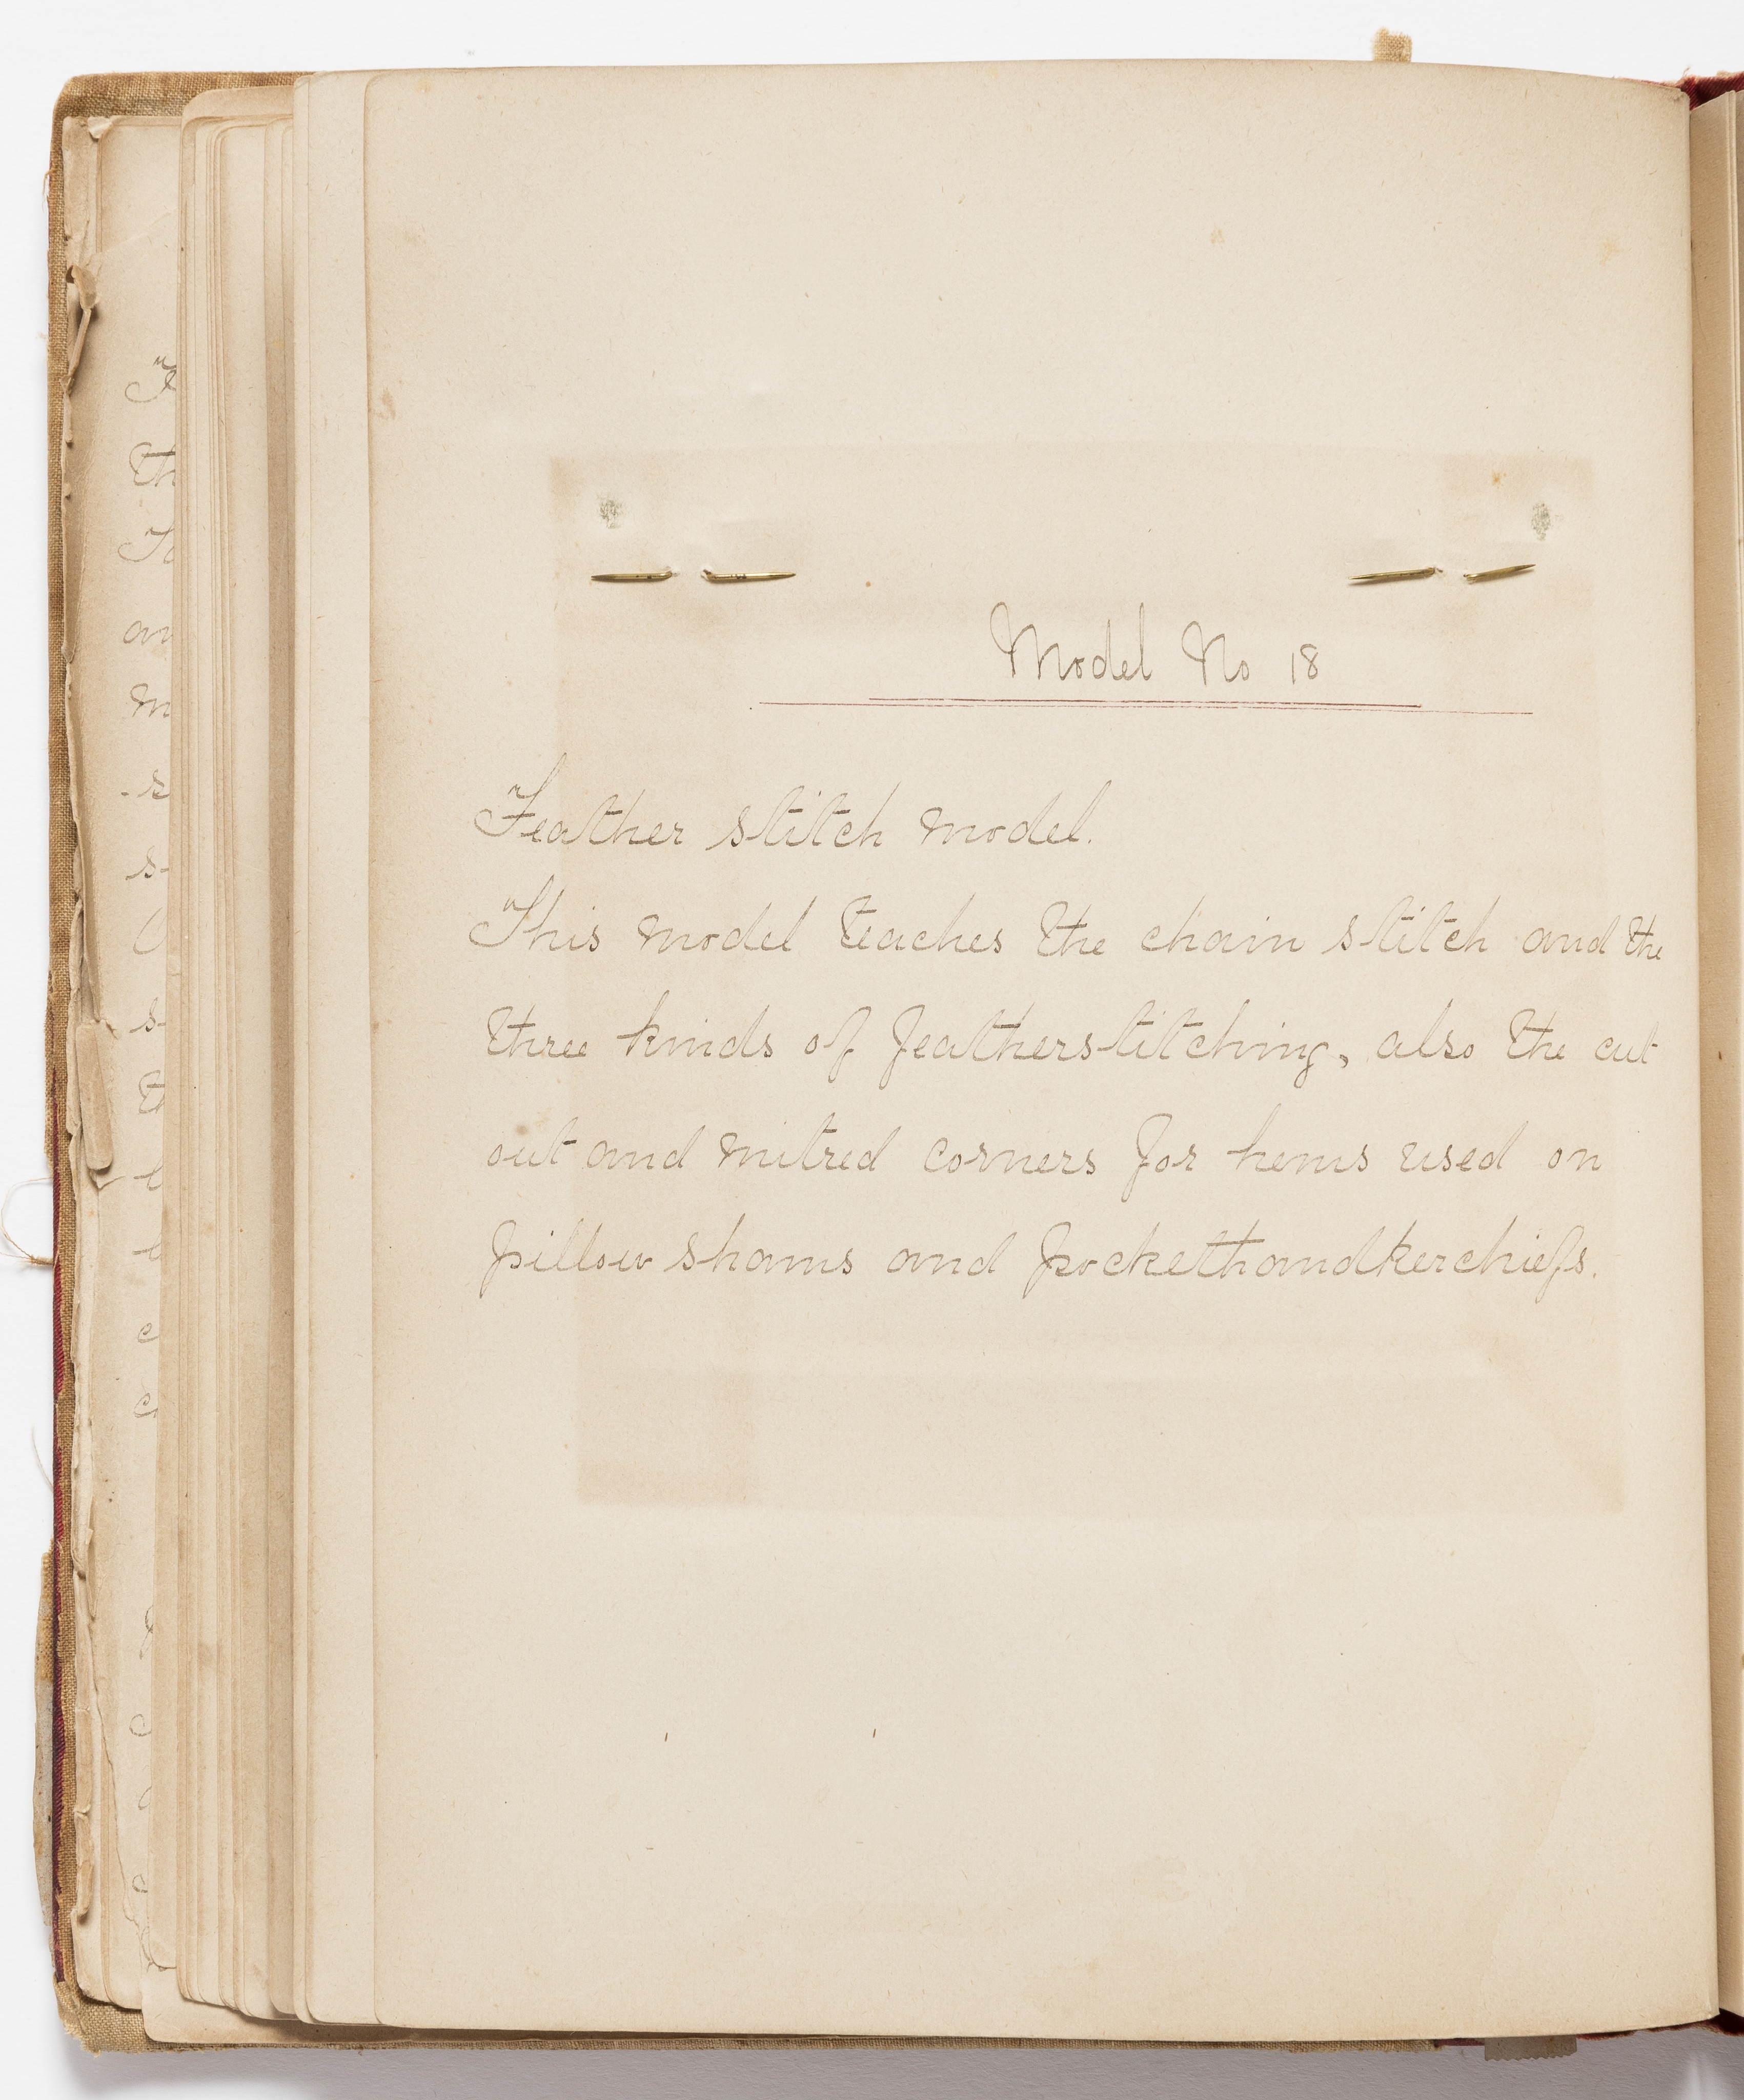 Model No 18
Feather stitch model.
This model teaches the chain stitch and the
three kinds of featherstitching, also the cut
out and mitred corners for hems used on
pillow shams and pockethandkerchiefs.